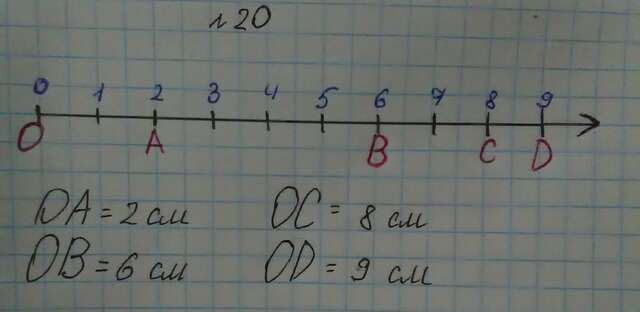 №20
0 1 2 3 4 5 6 7 8 9
O A B C D
OA = 2 см OC = 8 см
OB = 6 см OD = 9 см